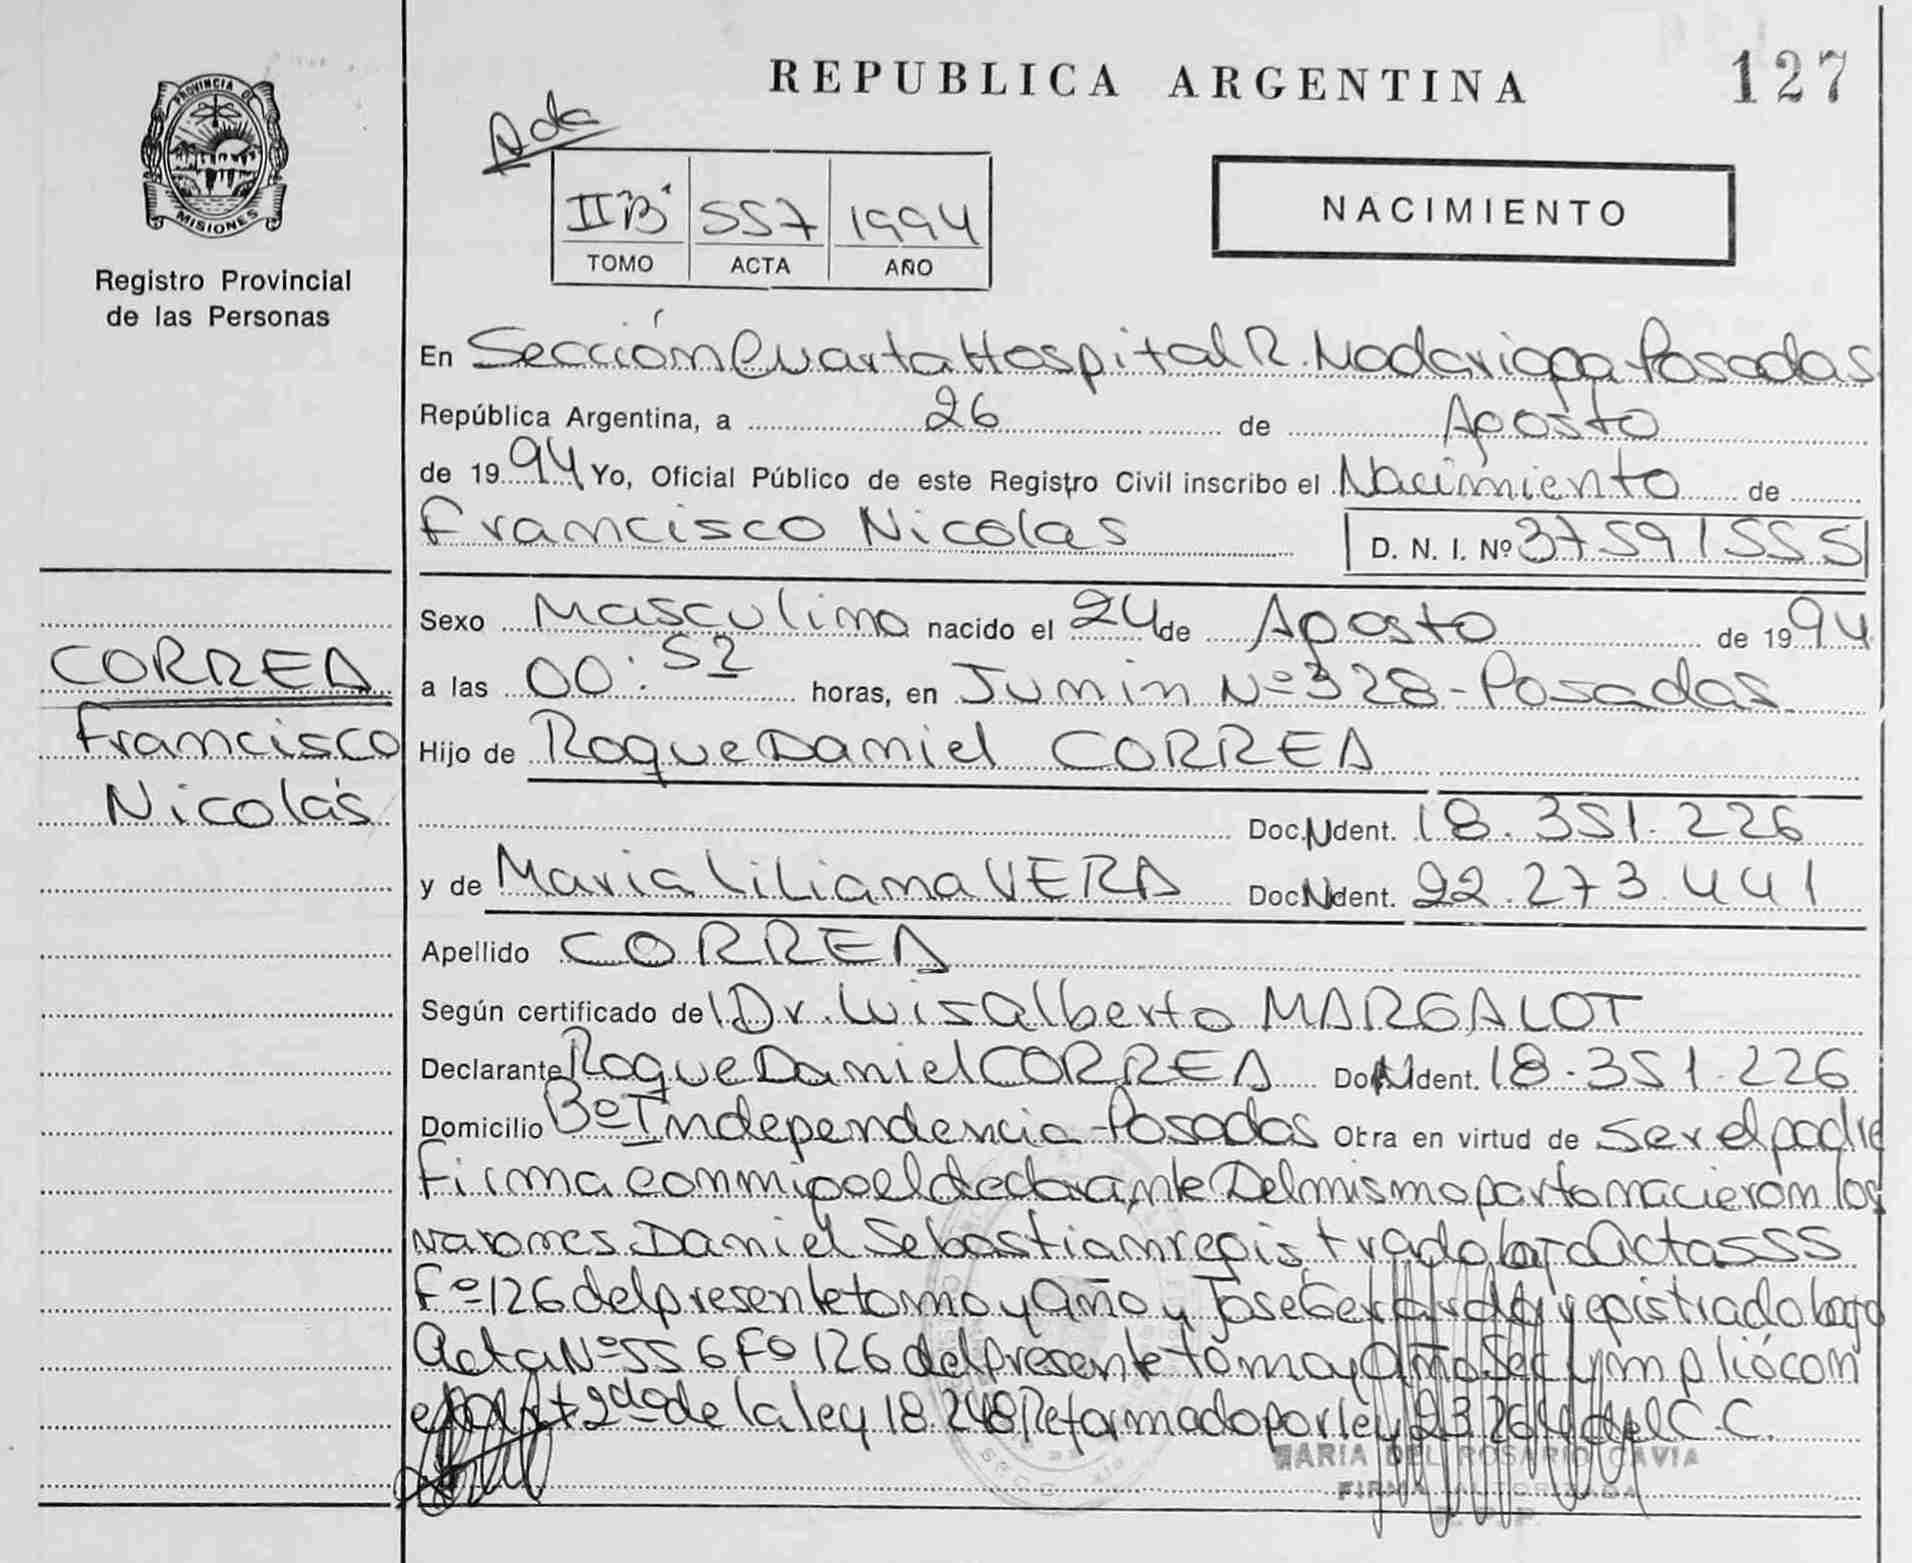 REPUBLICA ARGENTINA
127
PROVINCIA DE
MISIONES
Registro Provincial
de las Personas
IIB 557 1994
TOMO ACTA AÑO
NACIMIENTO
En Sección Cuarta Hospital R. Madariaga-Posadas
República Argentina, a 26 de Agosto
de 1994 Yo, Oficial Público de este Registro Civil inscribo el Nacimiento de
Francisco Nicolas D. N. I. Nº 37591555
Sexo Masculino nacido el 24 de Agosto de 1994
a las 00:52 horas, en Junin Nº 328-Posadas
CORREA
Francisco
Nicolás
Hijo de Roque Daniel CORREA
Doc. N Ident. 18.351.226
y de Maria Liliana VERA Doc N Ident. 22.273.441
Apellido CORREA
Según certificado del Dr. Luis Alberto MARGALOT
Declarante Roque Daniel CORREA Doc N Ident. 18.351.226
Domicilio Bº Independencia-Posadas Obra en virtud de ser el padre
firma conmigo el declarante Del mismo parto nacieron los
varones Daniel Sebastian registrado bajo Acta 555
Fº 126 del presente tomo y Año y Jose Gerardo registrado bajo
Acta Nº 556 Fº 126 del presente tomo y Año Se cumplió con
el Art 2do de la ley 18.248 Reformado por ley 23264 del C.C.
MARIA DEL ROSARIO CAVIA
FIRMA AUTORIZADA